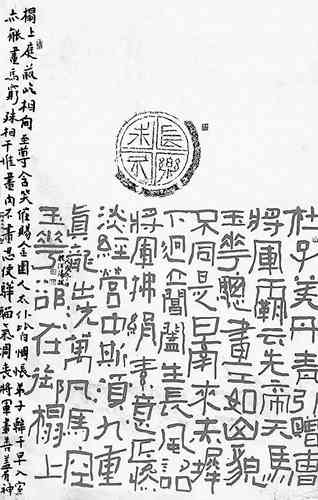 長樂未央
杜子美丹青引贈曹
將軍霸云先帝天馬
玉華驄畫工如山貌
不同是日牽來赤墀
下迥立閶闔生長風詔
將軍拂絹素意匠慘
淡經營中斯須九重
真龍出洗萬古凡馬空
玉華卻在御榻上
榻上庭前屹相向至尊含笑催賜金圉人太仆皆惆悵弟子韓干早入室
亦能畫馬窮殊相干惟畫肉不畫骨忍使驊騮氣凋喪將軍畫善蓋有神